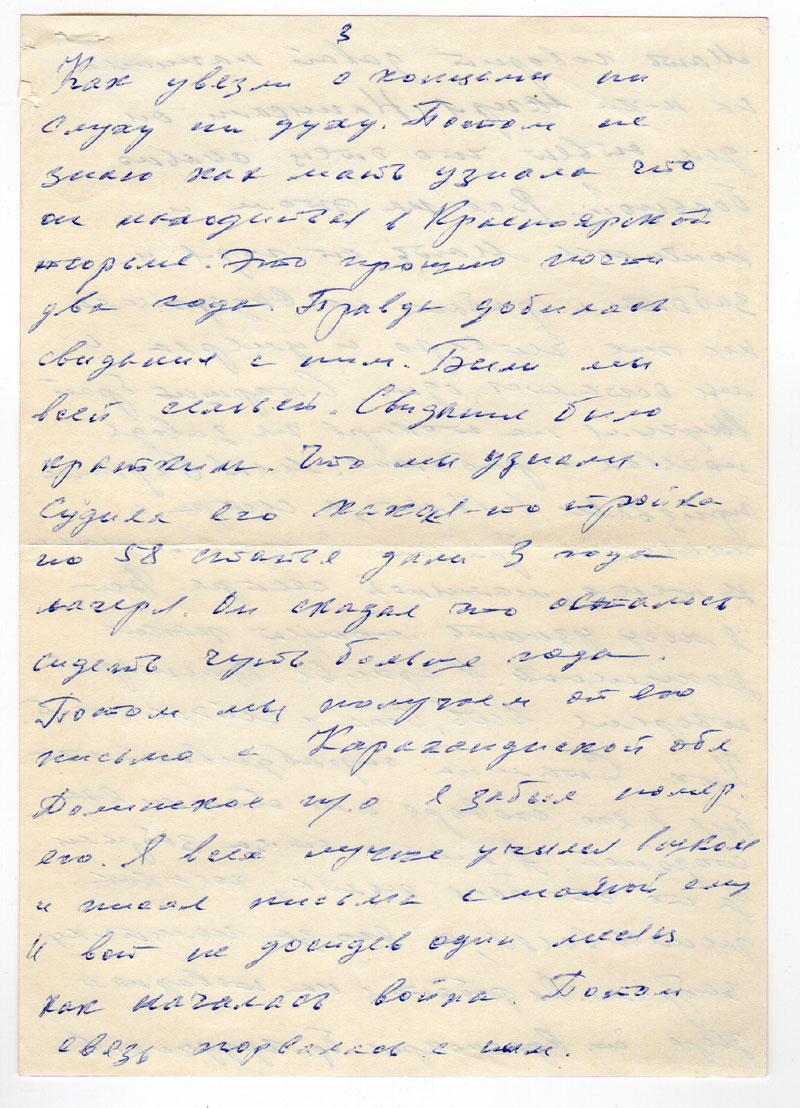 3
Как увезли с концами ни
слуху ни духу. Потом не
знаю как мать узнала что
он находится в Красноярской
тюрьме. Это прошло почти
два года. Правда добилась
свидания с ним. Были мы
всей семьей. Свидание было
кратким. Что мы узнали.
Судила его какая-то тройка
по 58 статье дали 3 года
лагеря. Он сказал что осталось
сидеть чуть больше года.
Потом мы получаем от его
письма с Карагандинской обл
Долинское п/о я забыл номер.
его. Я всех лучше учился в школе
и писал письма с мамой ему
И вот не досидев один месяц
как началась война. Потом
связь порвалась с ним.